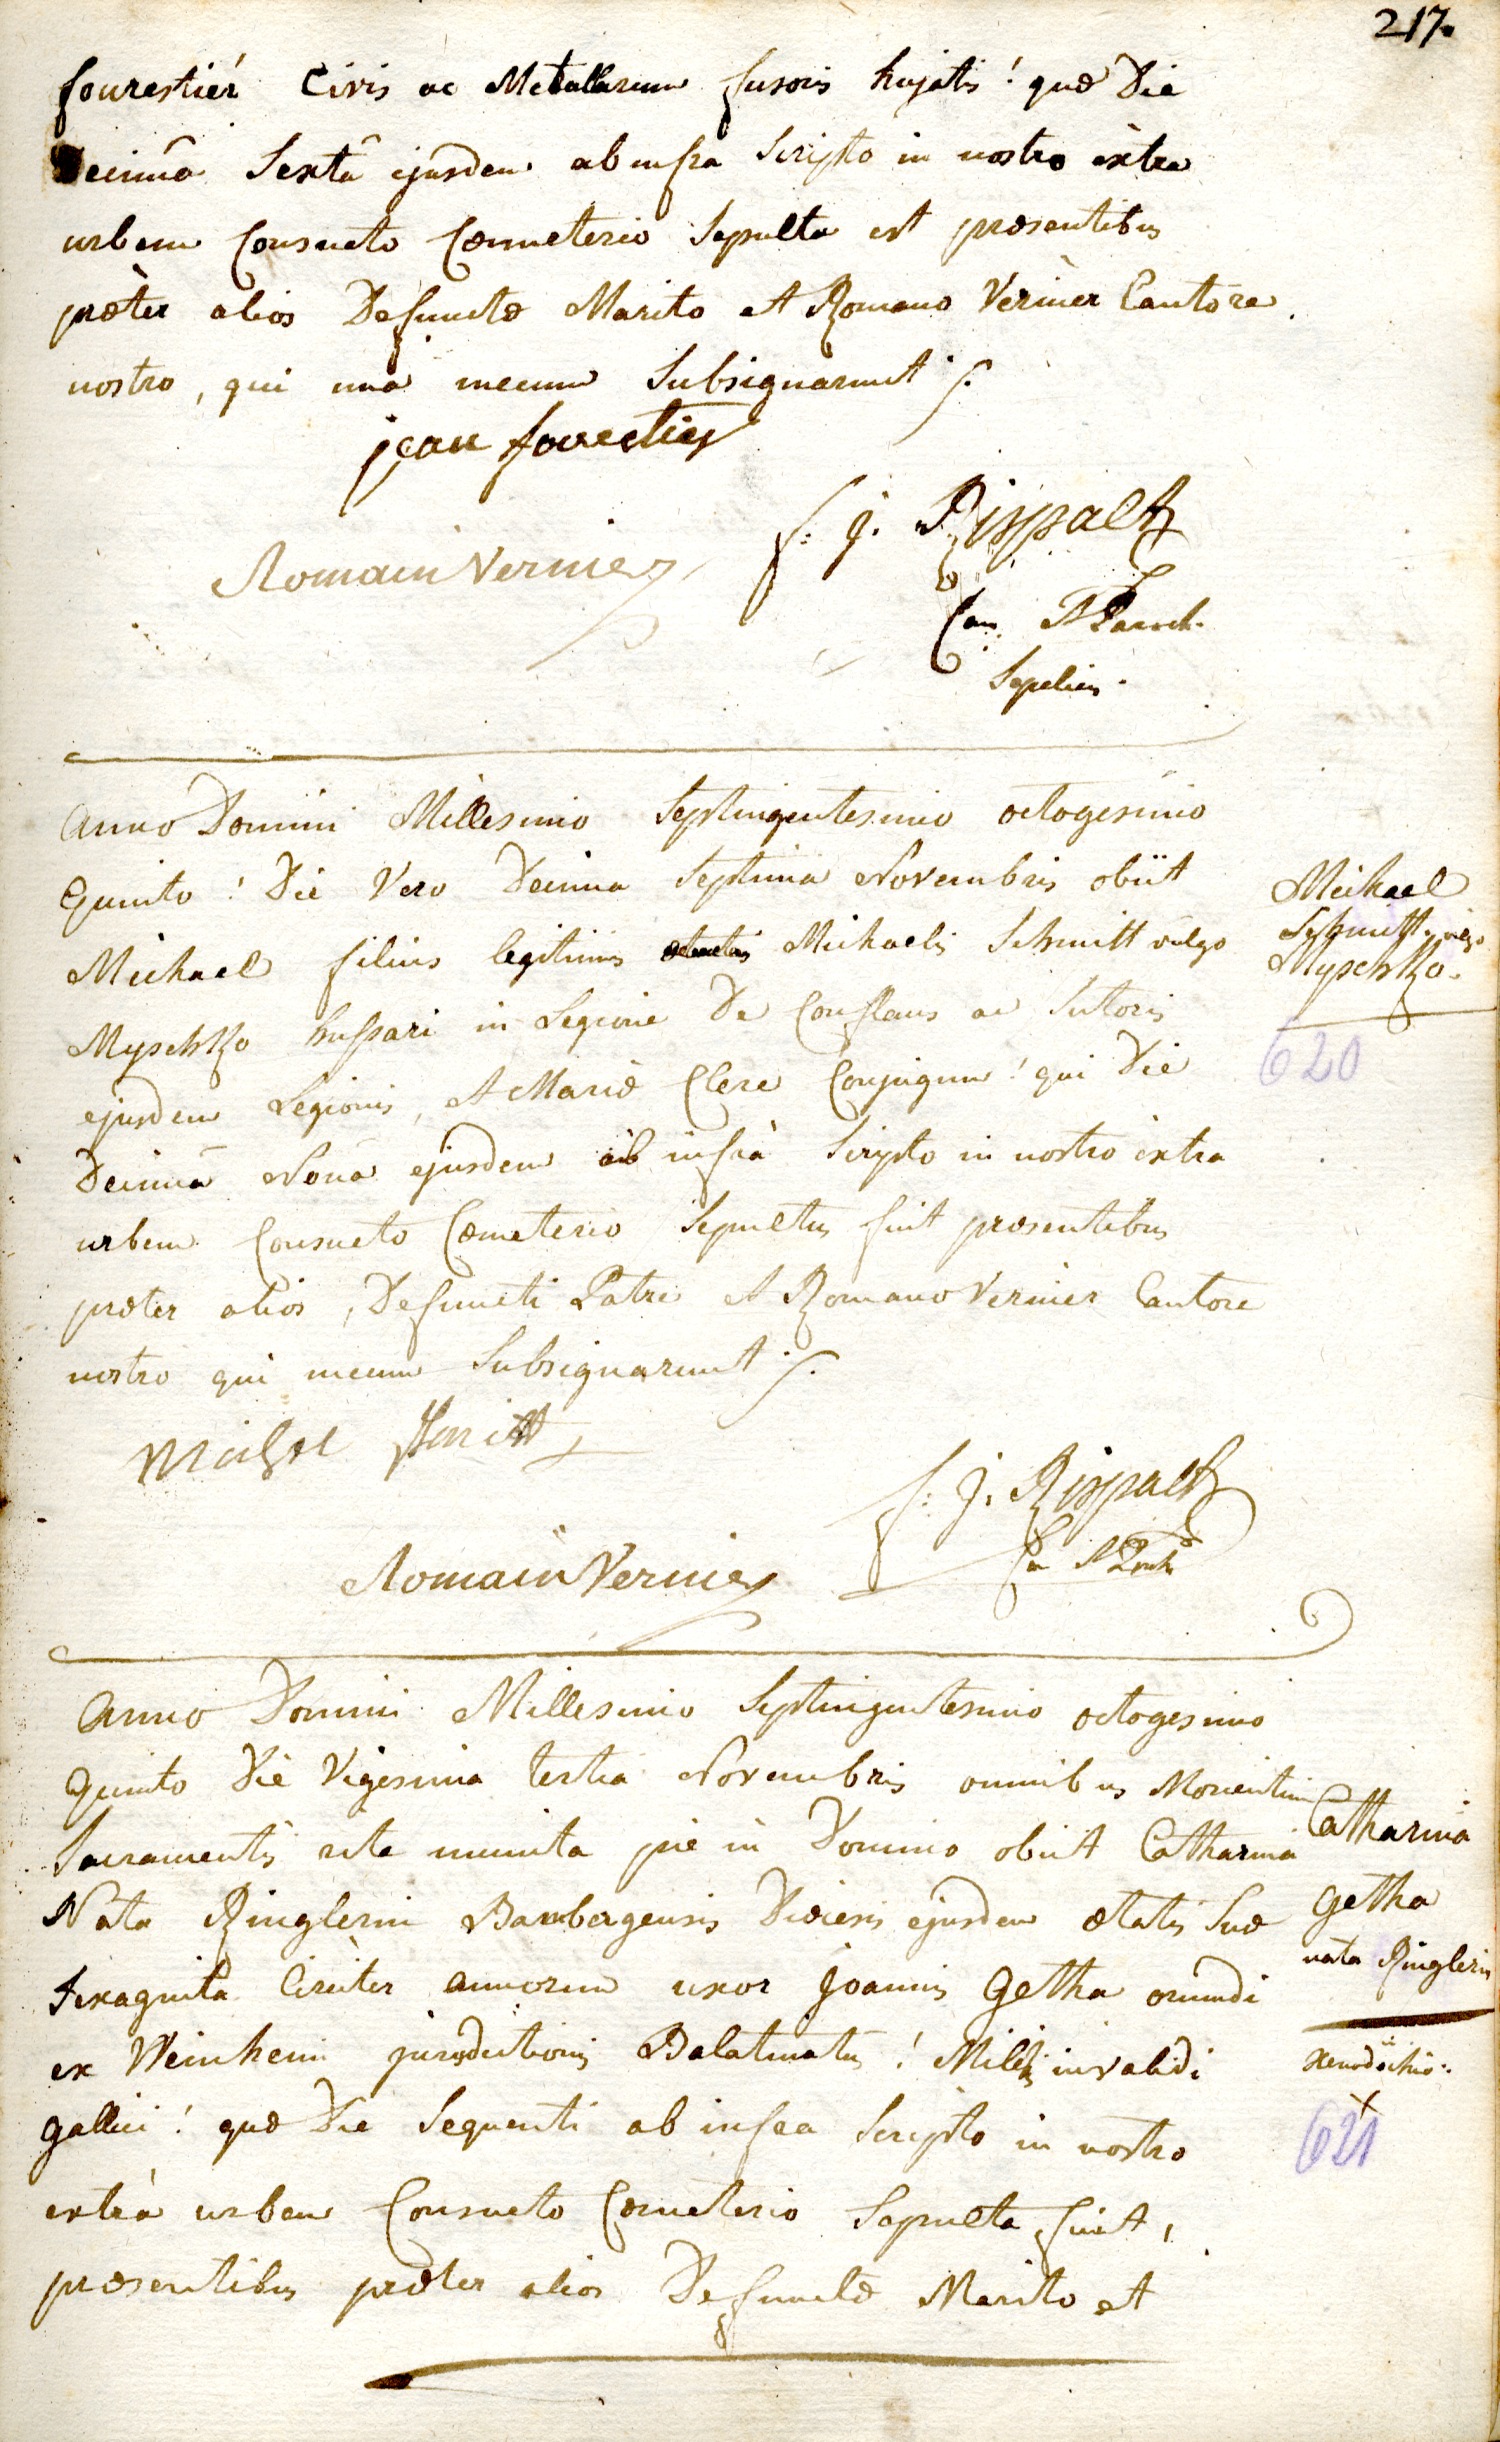 217.
fourestier Civis ac Metallarum fusoris hujatis! quæ Die
Decimâ Sextâ ejusdem ab infra Scripto in nostro extra
urbem Consueto Cœmeterio Sepulta est præsentibus
præter alios Defunctæ Marito et Romano Vernier Cantore
nostro, qui una mecum Subsignarunt
jean fourestier
Romain Vernier
f: j. Rispalt
Can. et Paroch.
Sepelien.
Anno Domini Millesimo Septingentesimo octogesimo
Quinto! Die Vero Decima Septima Novembris obiit
Michael filius legitimus Michaelis Schmitt vulgo
Myschko hussari in Legione De Conflans ac Sutoris
ejusdem Legionis, et Mariæ Clere Conjugum! qui Die
Decimâ Nonâ ejusdem ab infrà Scripto in nostro extra
urbem Consueto Cœmeterio Sepultus fuit præsentibus
præter alios, Defuncti Patre et Romano Vernier Cantore
nostro qui mecum Subsignarunt
Michael
Schmitt vulgo
Myschko.
620
Michel Schmitt
f: j. Rispalt
Romain Vernier
Anno Domini Millesimo Septingentesimo octogesimo
Quinto Die Vigesima tertia Novembris omnibus Morientium
Sacramentis rite munita pie in Domino obiit Catharina
Nata Ringlerin Bambergensis Diœcesis ejusdem ætatis Suæ
Sexaginta Circiter annorum uxor Joannis Getha oriundi
ex Weinheim jurisdictionis Palatinatus! Militis invalidi
gallici! quæ Die Sequenti ab infra Scripto in nostro
extrà urbem Consueto Cœmeterio Sepulta fuit,
præsentibus præter alios Defunctæ Marito et
Catharina
Getha
nata Ringlerin
Xenodochio:
621